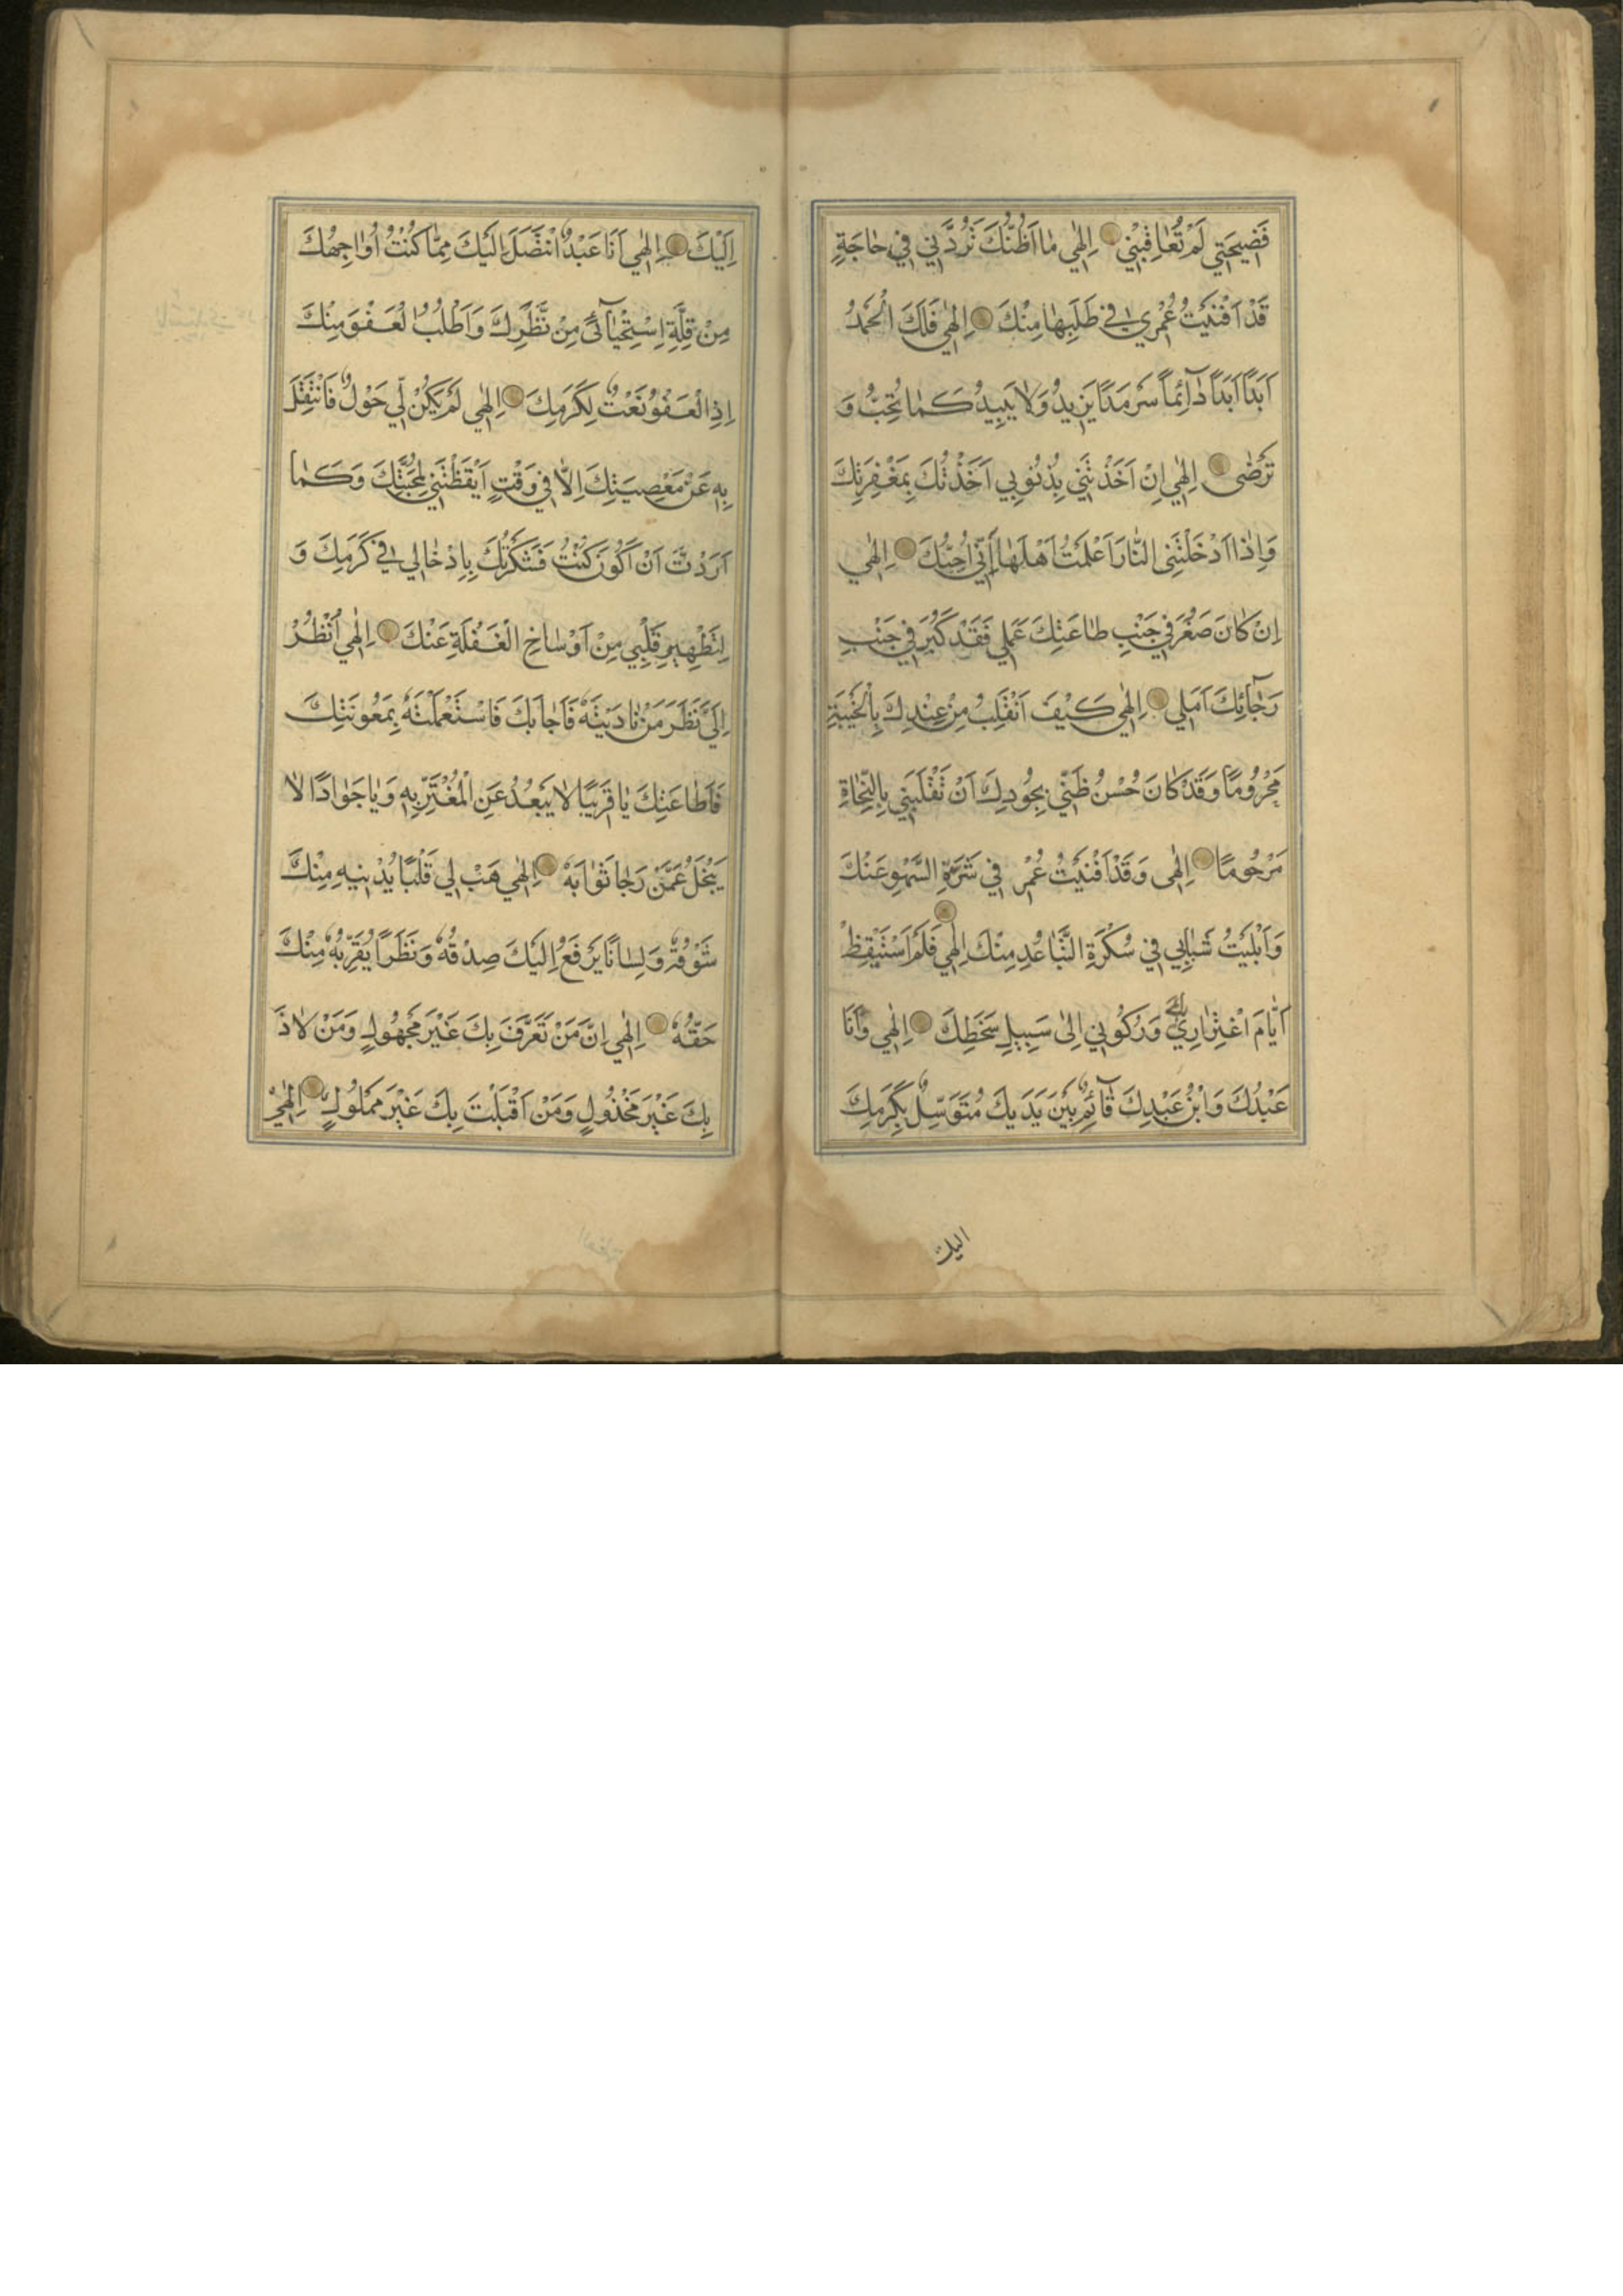 فَضيحَتِي لَمْ تُعٰاقِبْنِي اِلٰهِي مٰا اَظُنُّكَ تَرُدَّنِي فِي حٰاجَةٍ
قَدْ اَفْنَيْتُ عُمْرِي فِي طَلَبِهٰا مِنْكَ اِلٰهِي فَلَكَ الْحَمْدُ
اَبَدًا اَبَدًا دٰآئِماً سَرْمَدًا يَزِيدُ وَلٰا يَبِيدُ كَمٰا تُحِبُّ وَ
تَرْضٰى اِلٰهِي اِنْ اَخَذْتَنِي بِذُنُوبِي اَخَذْتُكَ بِمَغْفِرَتِكَ
وَاِذٰا اَدْخَلْتَنِى النّٰارَ اَعْلَمْتُ اَهْلَهٰا اَنِّي اُحِبُّكَ اِلٰهِي
اِنْ كٰانَ صَغُرَ فِي جَنْبِ طٰاعَتِكَ عَمَلِي فَقَدْ كَبُرَ فِي جَنْبِ
رَجٰآئِكَ اَمَلِي اِلٰهِي كَيْفَ اَنْقَلِبُ مِنْ عِنْدِكَ بِالْخَيْبَةِ
مَحْرُومًا وَقَدْ كٰانَ حُسْنُ ظَنِّي بِجُودِكَ اَنْ تَقْلَبَنِي بِالنَّجٰاةِ
مَرْحُومًا اِلٰهِى وَقَدْ اَفْنَيْتُ عُمْرِ فِي شَرَّةِ السَّهْوِ عَنْكَ
وَاَبْلَيْتُ شَبٰابِي فِي سُكْرَةِ التَّبٰاعُدِ مِنْكَ اِلٰهِي فَلَمْ اَسْتَيْقِظْ
اَيّٰامَ اغْتِرٰارِي بِكَ وَرُكُوبِي اِلىٰ سَبِيلِ سَخَطِكَ اِلٰهِي وَاَنَا
عَبْدُكَ وَابْنُ عَبْدِكَ قٰآئِمٌ بَيْنَ يَدَيْكَ مُتَوَسِّلٌ بِكَرَمِكَ
اليك
اِلَيْكَ اِلٰهِي اَنَا عَبْدٌ اَتَنَصَّلُ اِلَيْكَ مِمّٰا كُنْتُ اُوٰاجِهُكَ
مِنْ قِلَّةِ اِسْتِحْيٰآئِي مِنْ نَظَرِكَ وَاَطْلُبُ الْعَفْوَ مِنْكَ
اِذِ الْعَفْوُ نَعْتٌ لِكَرَمِكَ اِلٰهِي لَمْ يَكُنْ لِي حَوْلٌ فَانْتَقِلَ
بِهِ عَنْ مَعْصِيَتِكَ اِلّٰا فِي وَقْتٍ اَيْقَظْتَنِي لِمَحَبَّتِكَ وَكَمٰا
اَرَدْتَ اَنْ اَكُونَ كُنْتُ فَشَكَرْتُكَ بِاِدْخٰالِي فِي كَرَمِكَ وَ
لِتَطْهِيرِ قَلْبِي مِنْ اَوْسٰاخِ الْغَفْلَةِ عَنْكَ اِلٰهِي اُنْظُرْ
اِلَيَّ نَظَرَ مَنْ نٰادَيْتَهُ فَاَجٰابَكَ فَاسْتَعْمَلْتَهُ بِمَعُونَتِكَ
فَاَطٰاعَكَ يٰا قَرِيبًا لٰا يَبْعُدُ عَنِ الْمُغْتَرِّ بِهِ وَيٰا جَوٰادًا لٰا
يَبْخَلُ عَمَّنْ رَجٰا ثَوٰابَهُ اِلٰهِي هَبْ لِي قَلْبًا يُدْنِيهِ مِنْكَ
شَوْقُهُ وَلِسٰانًا يَرْفَعُ اِلَيْكَ صِدْقُهُ وَنَظَرًا يُقَرِّبُهُ مِنْكَ
حَقُّهُ اِلٰهِي اِنَّ مَنْ تَعَرَّفَ بِكَ غَيْرَ مَجْهُولٍ وَمَنْ لٰاذَ
بِكَ غَيْرَ مَخْذُولٍ وَمَنْ اَقْبَلْتَ بِكَ غَيْرَ مَمْلُولٍ اِلٰهِي